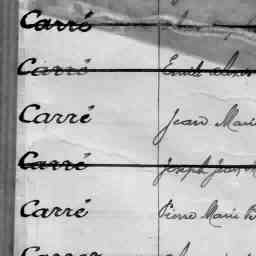 Carré
Carré Emile Alexis
Carré Jean Marie
Carré Joseph Jean M
Carré Pierre Marie